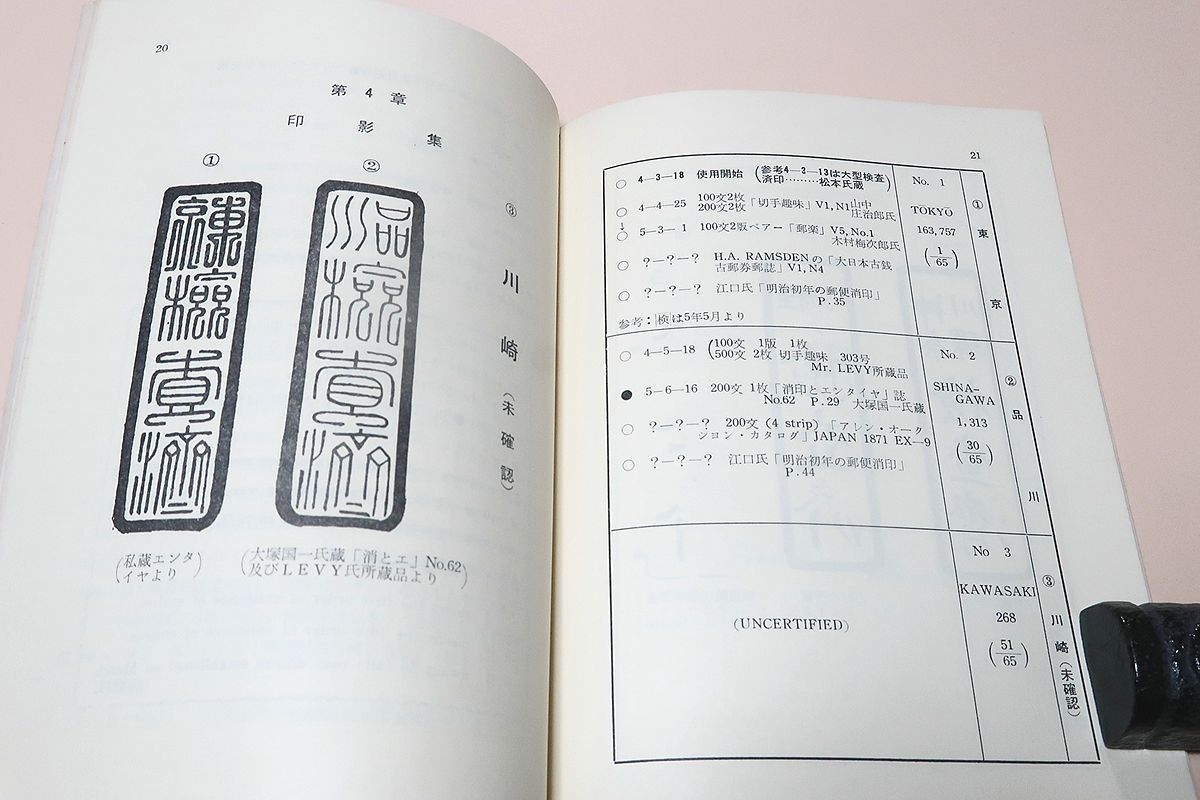 20
第 4 章
印 影 集
①
②
③ 川 崎 (未確認)
(私蔵エンタ
イヤより)
(大塚国一氏蔵「消とエ」No.62
及びLEVY氏所蔵品より)
21
○ 4—3—18 使用開始 (参考4—2—13は大型検査
済印………松本氏蔵)
○ 4—4—25 100文2枚
200文2枚「切手趣味」V1, N1山中
庄治郎氏
↓
○ 5—3—1 100文2版ペアー「郵楽」V5, No.1
木村梅次郎氏
○ ?—?—? H.A. RAMSDENの「大日本古銭
古郵券郵誌」V1, N4
○ ?—?—? 江口氏「明治初年の郵便消印」
P.35
参考：検は5年5月より
No. 1
TŌKYŌ
163,757
(1/65)
① 東 京
○ 4—5—18 (100文 1版 1枚
500文 2枚 切手趣味 303号
Mr. LEVY所蔵品
● 5—6—16 200文 1枚「消印とエンタイヤ」誌
No.62 P.29 大塚国一氏蔵
○ ?—?—? 200文 (4 strip) 「アレン・オーク
ション・カタログ」JAPAN 1871 EX—9
○ ?—?—? 江口氏「明治初年の郵便消印」
P.44
No. 2
SHINA-
GAWA
1,313
(30/65)
② 品 川
(UNCERTIFIED)
No 3
KAWASAKI
268
(51/65)
③ 川 崎 (未確認)